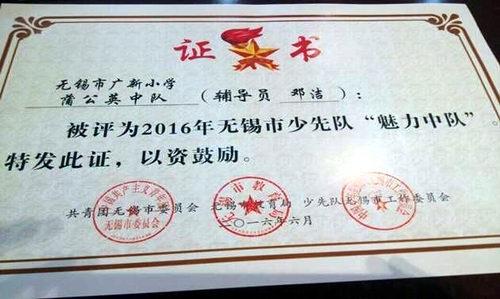 证书
无锡市广新小学
蒲公英中队（辅导员 邓洁）：
被评为2016年无锡市少先队“魅力中队”。
特发此证，以资鼓励。
共青团无锡市委员会 无锡市教育局 少先队无锡市工作委员会
二〇一六年六月
无锡市委员会
无锡市教育局